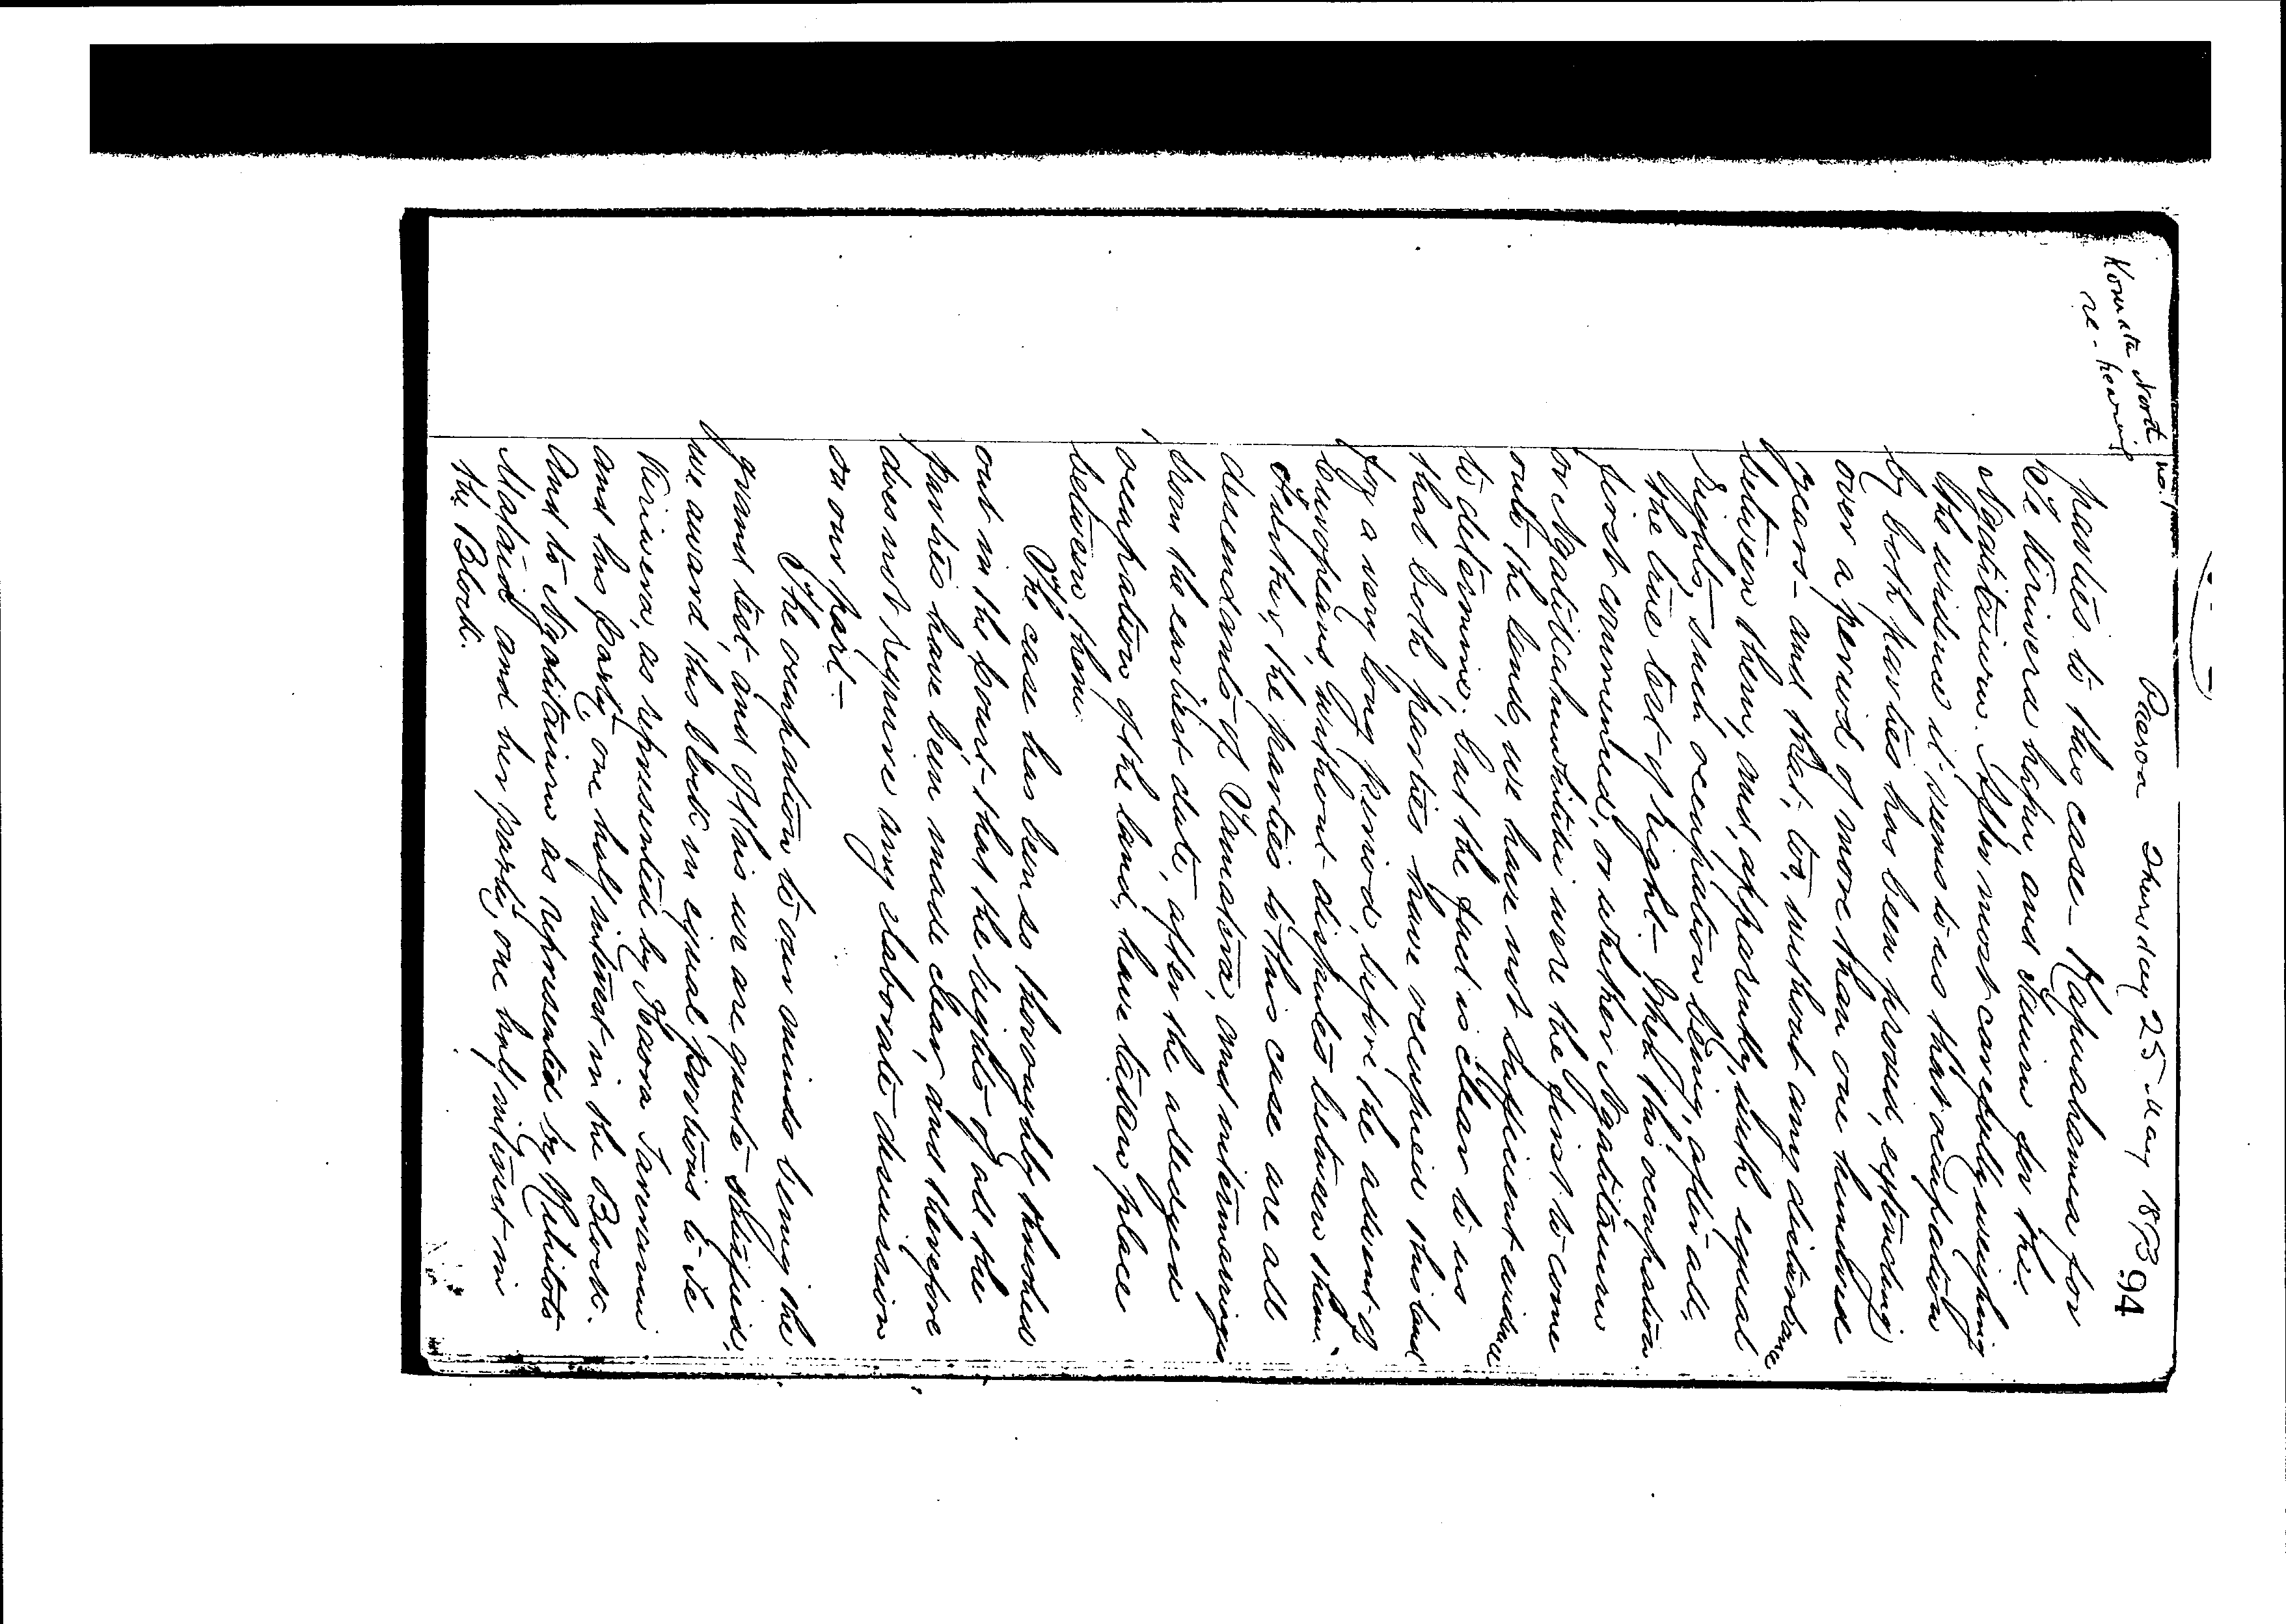 Paeroa Thursday 25 May 1893 94
Komata North no. 1
re-hearing
parties to this case— Rapuahamea for
Te Kiriwera hapu, and Tauiru for the
Ngatitauiru. After most carefully weighing
the evidence it seems to us that occupation
by both parties has been proved, extending
over a period of more than one hundred
years— and that, too, without any disturbance
between them, and, apparently, with equal
rights, such occupation being, after all,
the true test of right— When this occupation
first commenced, or whether Ngatitauiru
or were the first to come
onto the land, we have not sufficient evidence
to determine, but the fact is clear to us
that both parties have occupied this land
for a very long period before the advent of
Europeans, without disputes between them.
Further, the parties to this case are all
descendants of Tamatera, and intermarriage
from the earliest date, after the alledged
occupation of the land, have taken place
between them.
The case has been so thoroughly threshed
out in the Court— that the rights of all the
parties have been made clear, and therefore
does not require any elaborate discussion
on our part—
The occupation to our minds being the
grand test, and of this we are quite satisfied,
we award this block in equal portions to Te
Kiriwera, as represented by Haora Tareranui
and his party, one half interest in the Block.
And to Ngatitauiru as represented by
and her party, one half interest in
the Block.